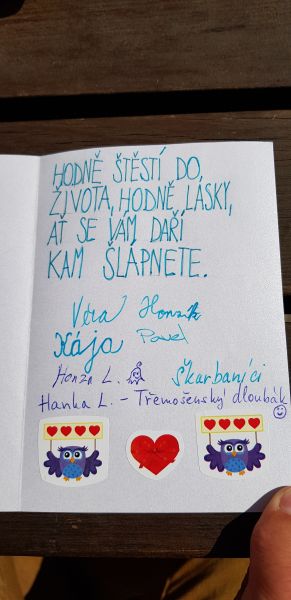 HODNĚ ŠTĚSTÍ DO
ŽIVOTA, HODNĚ LÁSKY,
AŤ SE VÁM DAŘÍ
KAM ŠLÁPNETE.
Věra Honzík
Kája Pavel
Honza L. Škurbaníci
Hanka L. - Třemošenský dloubák